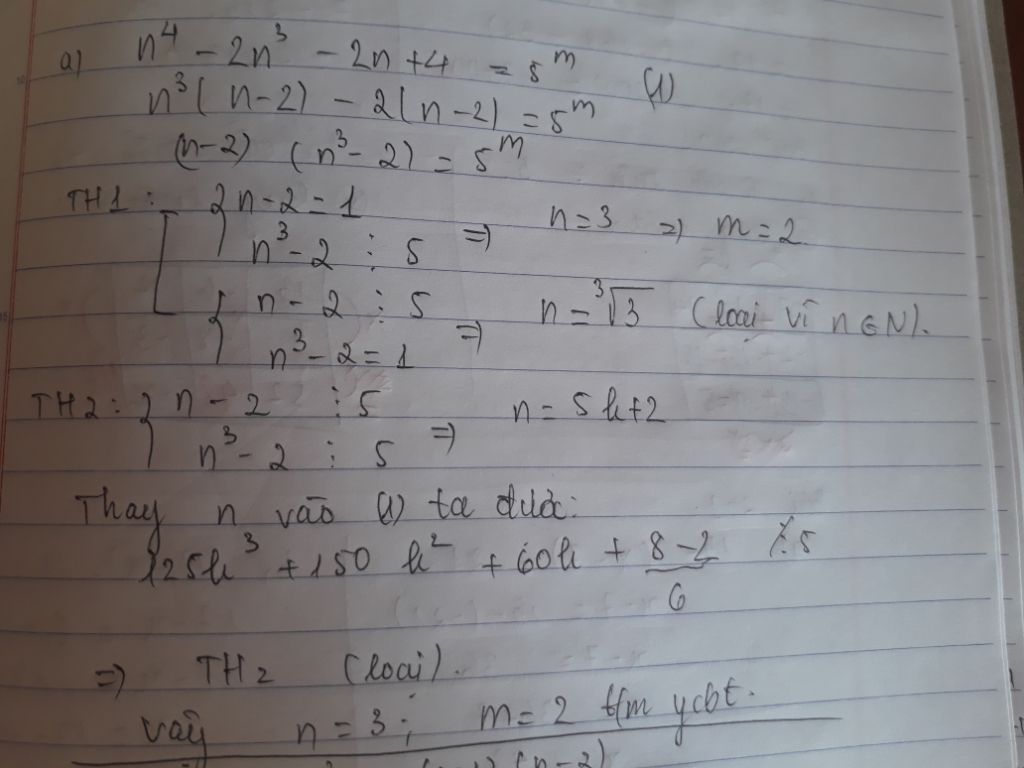 a) n⁴ - 2n³ - 2n + 4 = 5^m (1)
n³(n-2) - 2(n-2) = 5^m
(n-2) (n³-2) = 5^m
TH1: { n-2 = 1
n³-2 ⋮ 5 => n=3 => m=2
{ n-2 ⋮ 5
n³-2 = 1 => n = ³√3 (loại vì n∈N).
TH2: { n-2 ⋮ 5
n³-2 ⋮ 5 => n = 5k+2
Thay n vào (1) ta được:
125k³ + 150k² + 60k + 8-2 ⋮̸ 5
6
=> TH2 (loại).
vậy n=3; m=2 t/m ycbt.
(n-2)